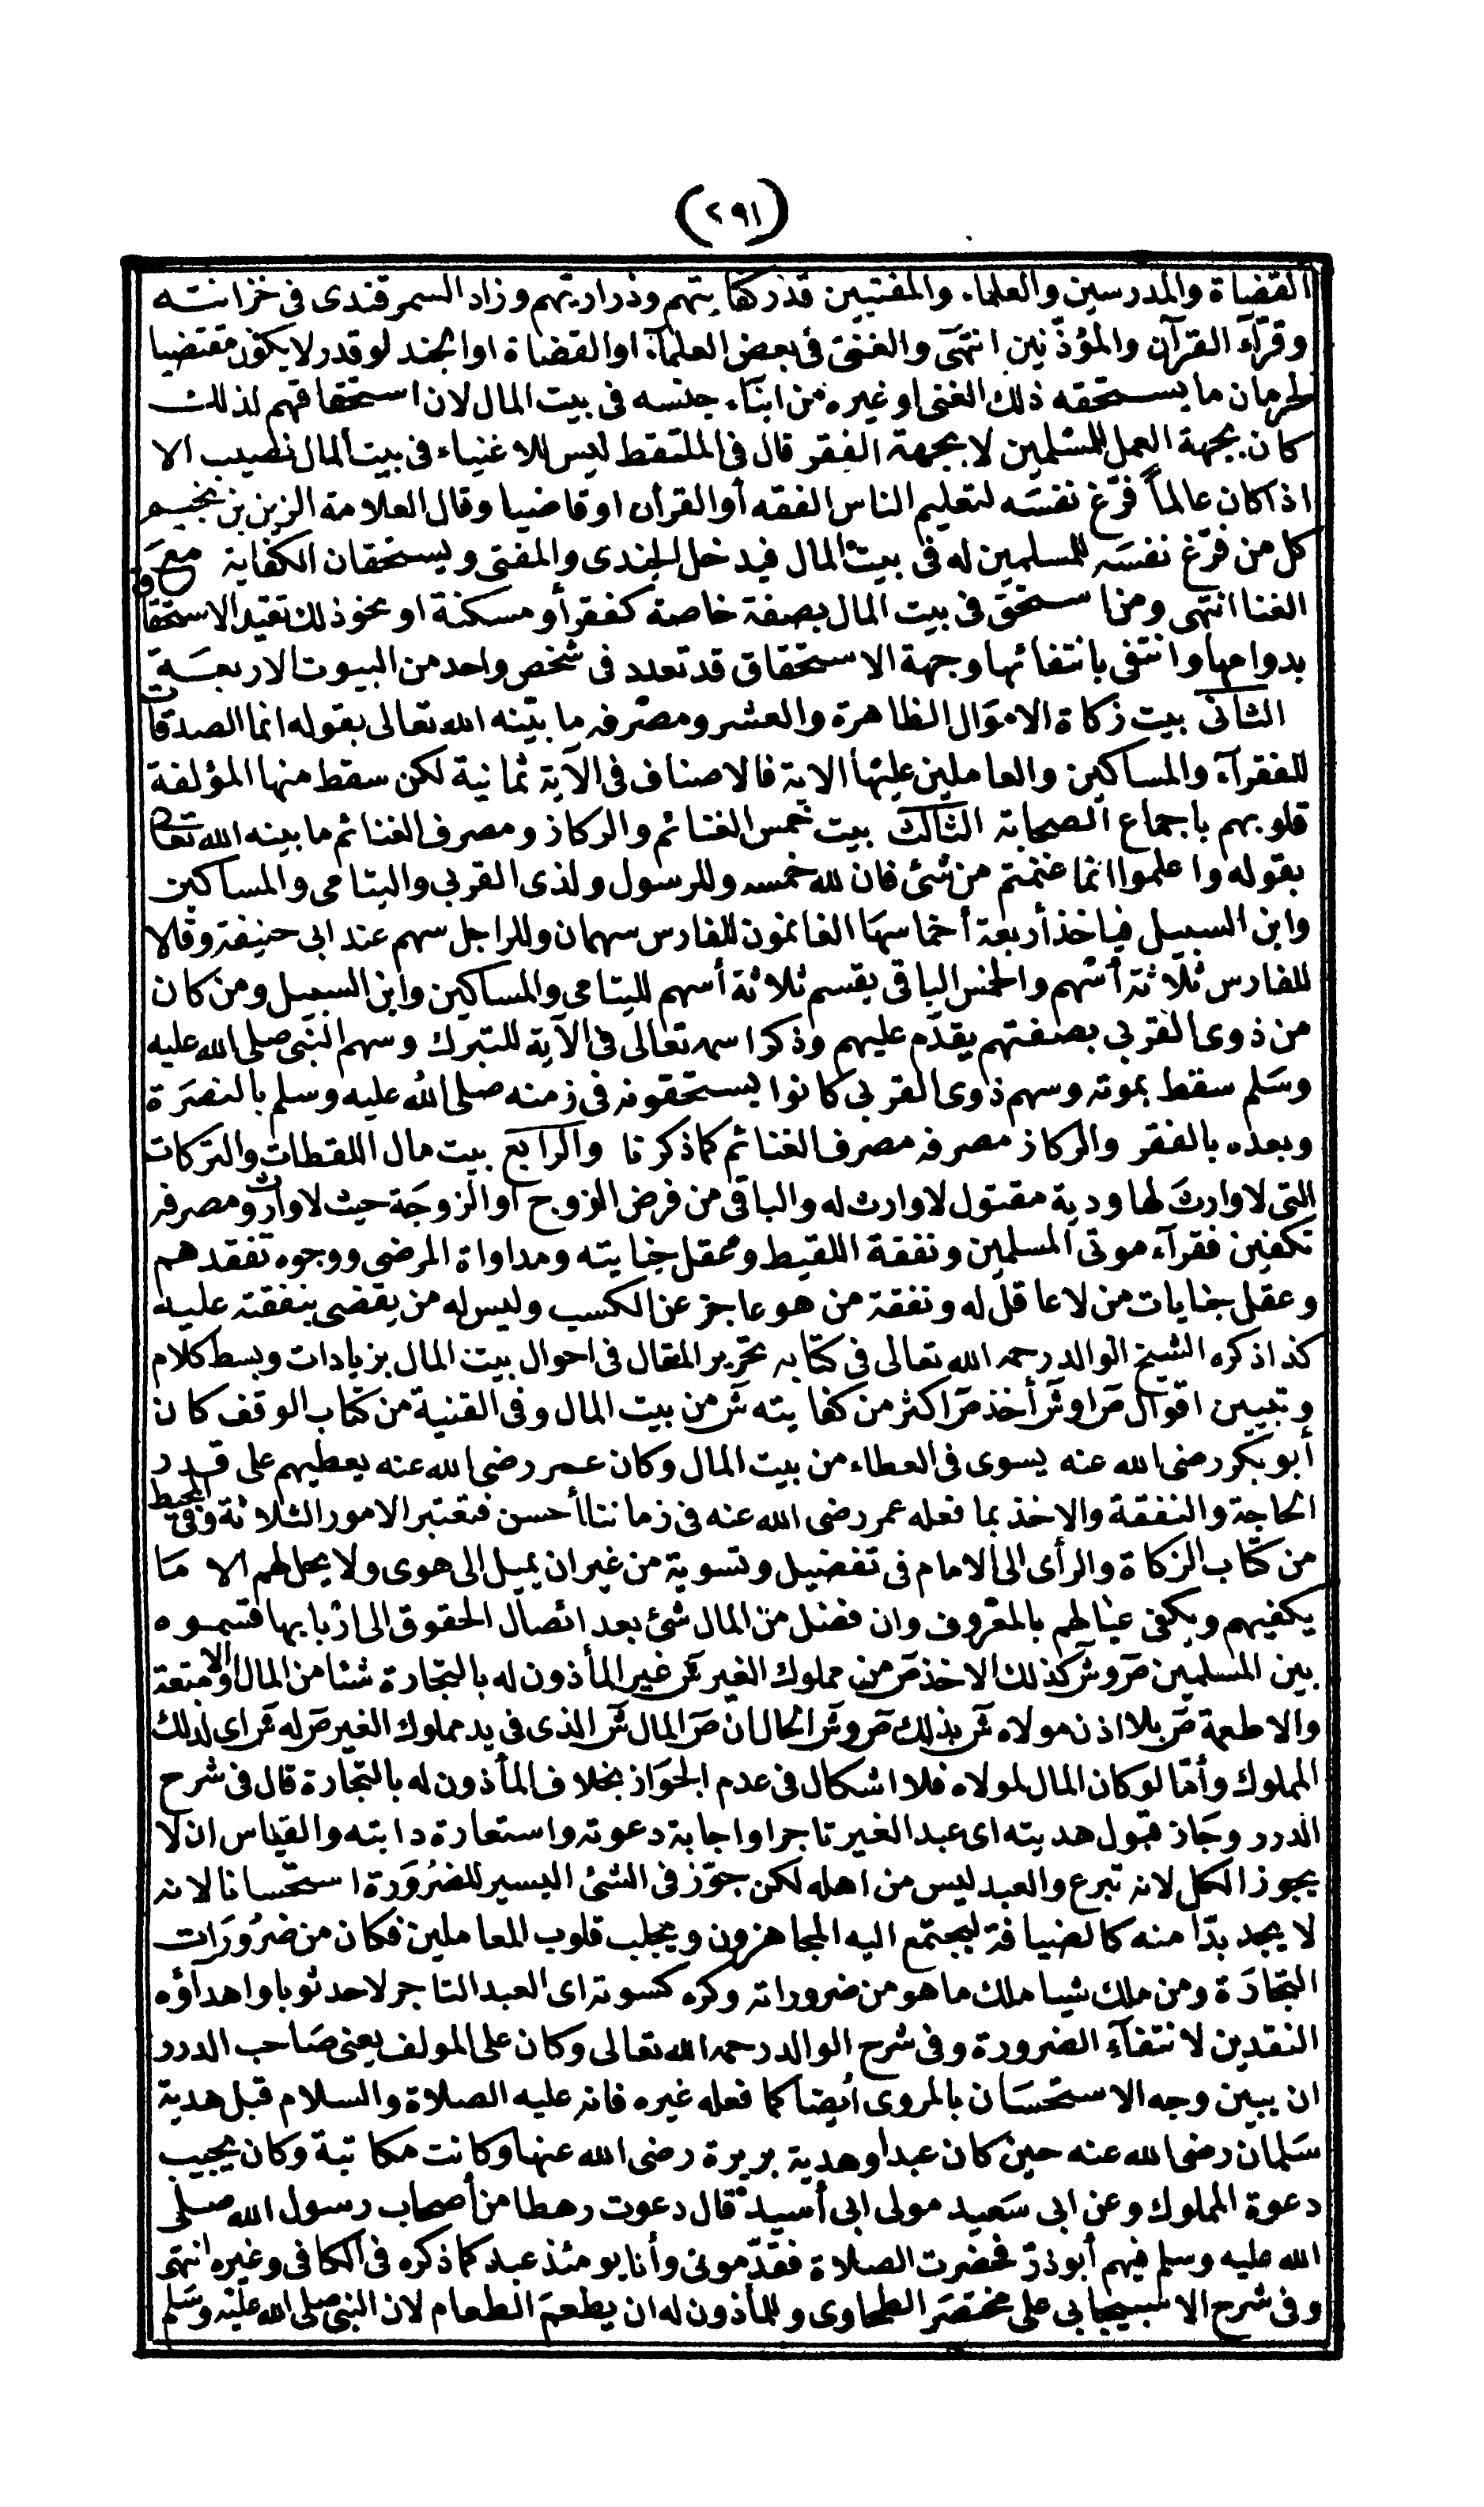 (٢٩١)
القضاة والمدرسين والعلماء والمفتيين قدر كفايتهم وذراريهم وزاد السمرقندى فى خزانته
وقرآء القرآن والمؤذنين انتهى والغنى فى بعض العلماء او القضاة او الجند لو قدر لا يكون مقتضيا
لحرمان ما يستحقه ذلك الغنى او غيره من ابناء جنسه فى بيت المال لان استحقاقهم لذلك
كان بجهة العمل للمسلمين لا بجهة الفقر قال فى الملتقط ليس للاغنياء فى بيت المال نصيب الا
اذا كان عالماً فرّغ نفسه لتعليم الناس الفقه أو القرأن او قاضيا وقال العلامة الزين بن نجيم
كل من فرّغ نفسَه للمسلمين له فى بيت المال فيدخل الجندى والمفتى ويستحقان الكفاية مع
الغنا انتهى ومن استحق فى بيت المال بصفة خاصة كفقر أو مسكنة او نحو ذلك تقيد الاستحقاق
بدوامها وانتفى بانتفائها وجهة الاستحقاق قد تعدد فى شخص واحد من البيوت الاربعَة
الثانى بيت زكاة الاموَال الظاهرة والعشر ومصرفه ما بيّنه الله تعالى بقوله انما الصدقات
للفقرآء والمساكين والعاملين عليها الاية فالاصناف فى الآية ثمانية لكن سقط منها المؤلفة
قلوبهم باجماع الصحابة الثالث بيت خمس الغنائم والركاز ومصرف الغنائم ما بينه الله تعالى
بقوله واعلموا انما غنمتم من شئ فان لله خمسه وللرسول ولذى القربى واليتامى والمساكين
وابن السبيل فيأخذ أربعة أخماسها الغانمون للفارس سهمان وللراجل سهم عند ابى حنيفة وقالا
للفارس ثلاثة أسهم والخمس الباقى يقسم ثلاثة أسهم لليتامى والمساكين وابن السبيل ومن كان
من ذوى القربى بصفتهم يقدّم عليهم وذكر اسمه تعالى فى الآية للتبرك وسهم النبى صلى الله عليه
وسَلم سقط بموته وسهم ذوى القربى كانوا يستحقونه فى زمنه صلى الله عليه وسلم بالنصَرة
وبعده بالفقر والركاز مصرفه مصرف الغنائم كما ذكرنا والرابع بيت مال اللقطات والتركات
التى لا وارثَ لها ودية مقتول لا وارث له والباقى من فرض الزوج أو الزوجَة حيث لا وارث ومصرفه
تكفين فقرآء موتى المسلمين ونفقة اللقيط وعقل جنايته ومداواة المرضى ووجوه تفقدهم
وعقل جنايات من لا عاقل له ونفقة من هو عاجز عن الكسب وليس له من يقضى بنفقته عليه
كذا ذكره الشيخ الوالد رحمه الله تعالى فى كتابه تحرير المقال فى احوال بيت المال بزيادات وبسط كلام
وتبيين اقوال صَ اوشَ أخذ صَ اكثر من كفايته شَ من بيت المال وفى القنية من كتاب الوقف كان
أبو بكر رضى الله عنه يسوى فى العطاء من بيت المال وكان عمر رضى الله عنه يعطيهم على قدر
الحاجة والنفقة والاخذ بما فعله عمر رضى الله عنه فى زماننا أحسن فتعتبر الامور الثلاثة وفى المحيط
من كتاب الزكاة والرأى الى الامام فى تفضيل وتسوية من غير ان يميل الى هوى ولا يحل لهم الا مَا
يكفيهم ويكفى عيالهم بالمعروف وان فضل من المال شئ بعد ائصال الحقوق الى اربابها قسموه
بين المسلمين صَ وشَ كذلك الاخذ صَ من مملوك الغير شَ غير المأذون له بالتجارة شئا من المال او الامتعة
والاطعمة صَ بلا اذن مولاه شَ بذلك صَ وشَ الحال ان صَ المال شَ الذى فى يد مملوك الغير صَ له شَ اى لذلك
المملوك وأما لو كان المال لمولاه فلا اشكال فى عدم الجوَاز بخلاف المأذون له بالتجارة قال فى شرح
الدرر وجَاز قبول هديته اى عبد الغير تاجرا واجابة دعوته واستعارة دابته والقياس ان لا
يجوز الكل لانه تبرع والعبد ليس من اهله لكن جوّز فى الشئ اليسير للضرُورَة استحسانا لانه
لا يجد بدّا منه كالضيافة ليجتمع اليه المجاهزون ويجلب قلوب المعاملين فكان من ضرُورَات
التجارَة ومن ملك شيا ملك ما هو من ضروراته وكره كسوته اى العبد التاجر لاحد ثوبا واهدآؤه
النقدين لانتفآء الضرورة وفى شرح الوالد رحمه الله تعالى وكان على المولف يعنى صَاحب الدرر
ان يبين وجه الاستحسَان بالمروى أيضا كما فعله غيره فانه عليه الصلاة والسلام قبل هدية
سَلمان رضى الله عنه حين كان عبدا وهدية بريرة رضى الله عنها وكانت مكاتبة وكان يجيب
دعوة المملوك وعن ابى سَعيد مولى ابى أسيد قال دعوت رهطا من أصحاب رسول الله صلى
الله عليه وسلم فيهم أبو ذرّ فحضرت الصلاة فقدّمونى وأنا يومئذ عبد كما ذكره فى الكافى وغيره انتهى
وفى شرح الاسبيجابى على مختصَر الطحاوى وللمأذون له ان يطعمَ الطعام لان النبى صلى الله عليه وسَلم